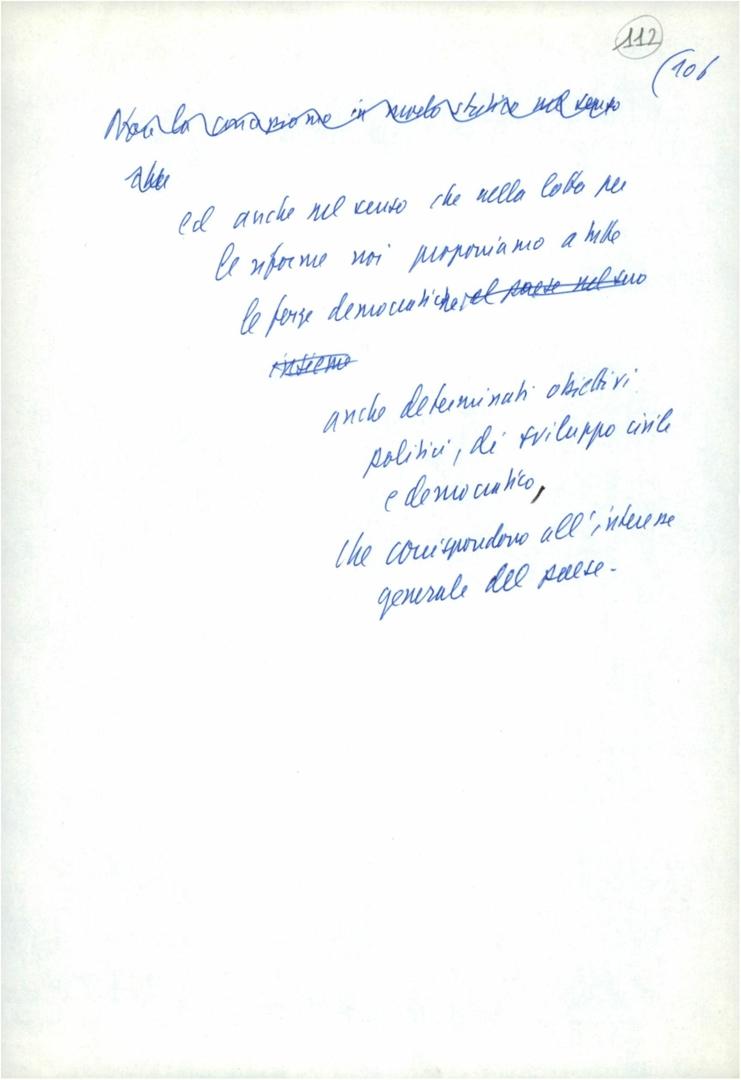 112
(106
Non la concepiamo in modo statico nel senso
che
ed anche nel senso che nella lotta per
le riforme noi proponiamo a tutte
le forze democratiche, al paese nel suo
insieme
anche determinati obiettivi
politici, di sviluppo civile
e democratico,
che corrispondono all'interesse
generale del paese.